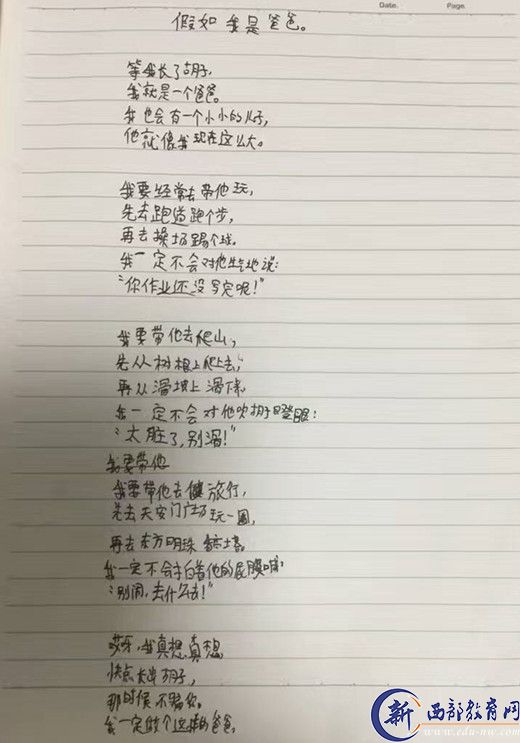 Date.
Page.
假如我是爸爸。
等我长了胡子,
我就是一个爸爸。
我也会有一个小小的儿子,
他就像我现在这么大。
我要经常去带他玩,
先去跑道跑个步,
再去操场踢个球。
我一定不会对他生气地说:
“你作业还没写完呢!”
我要带他去爬山,
先从树根上爬上去,
再从滑坡上滑下来。
我一定不会对他吹胡子瞪眼:
“太脏了,别滑!”
我要带他
我要带他去旅行,
先去天安门广场玩一圈,
再去东方明珠塔。
我一定不会拍着他的屁股喊:
“别闹,去什么去!”
哎呀,我真想真想
快点长出胡子,
那时候不骗你。
我一定做个这样的爸爸。
新 西部教育网
www.edu-nw.com